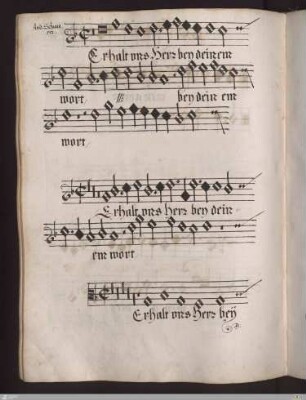 Erhalt vns Herr bey deinem
wort
bey deinem
wort
Erhalt vns Herr bey dein-
em wort
Erhalt vns Herr beÿ